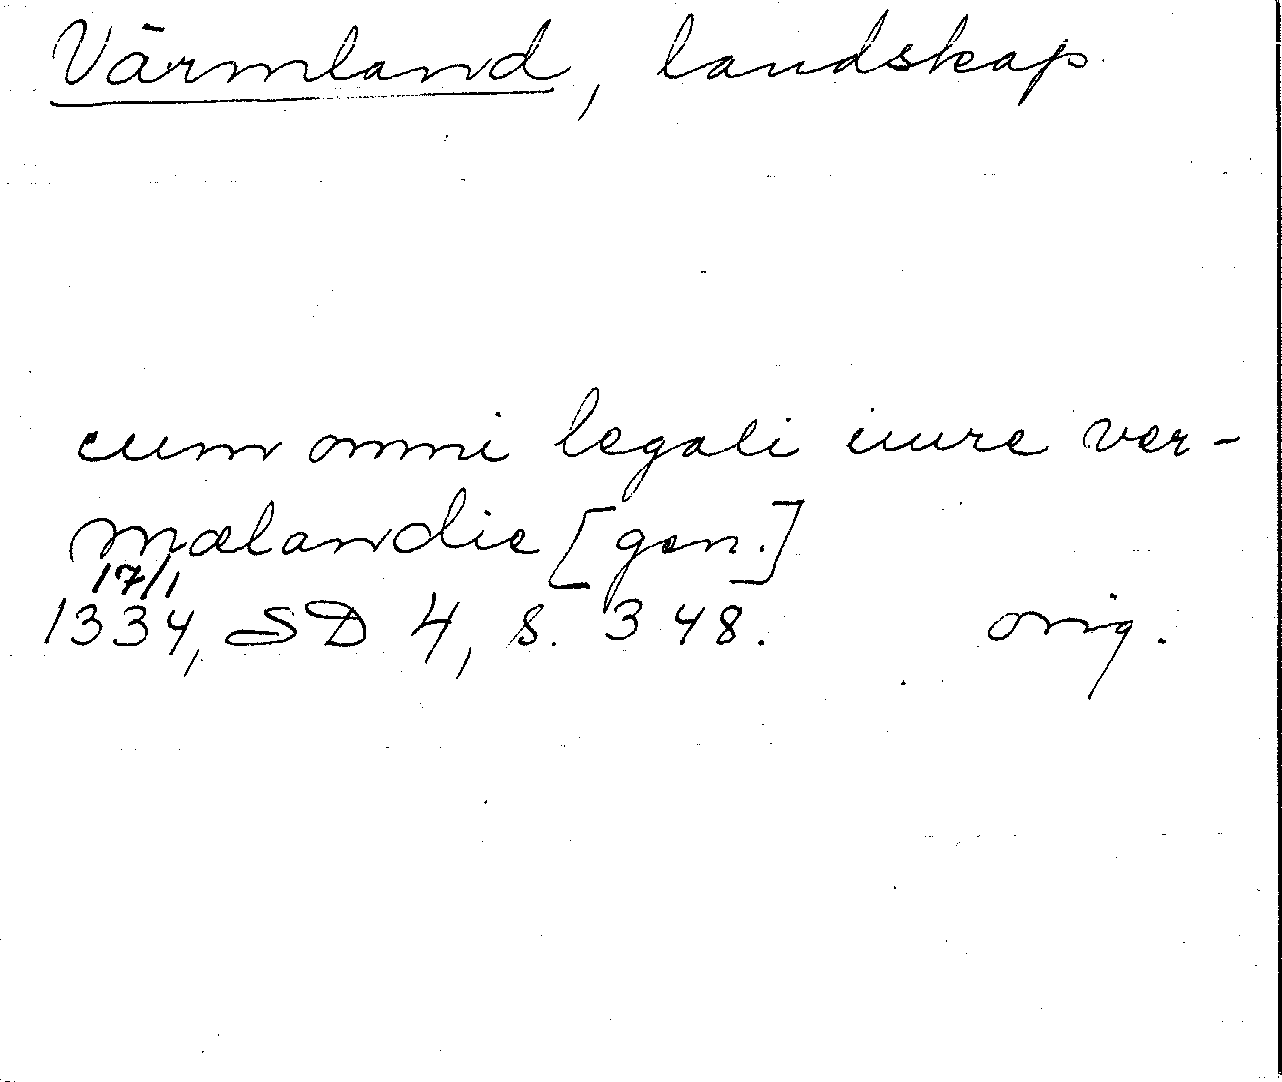 Värmland, landskap
cum omni legali iure ver-
mælandie [gen.]
17/1
1334, SD 4, s. 348. orig.